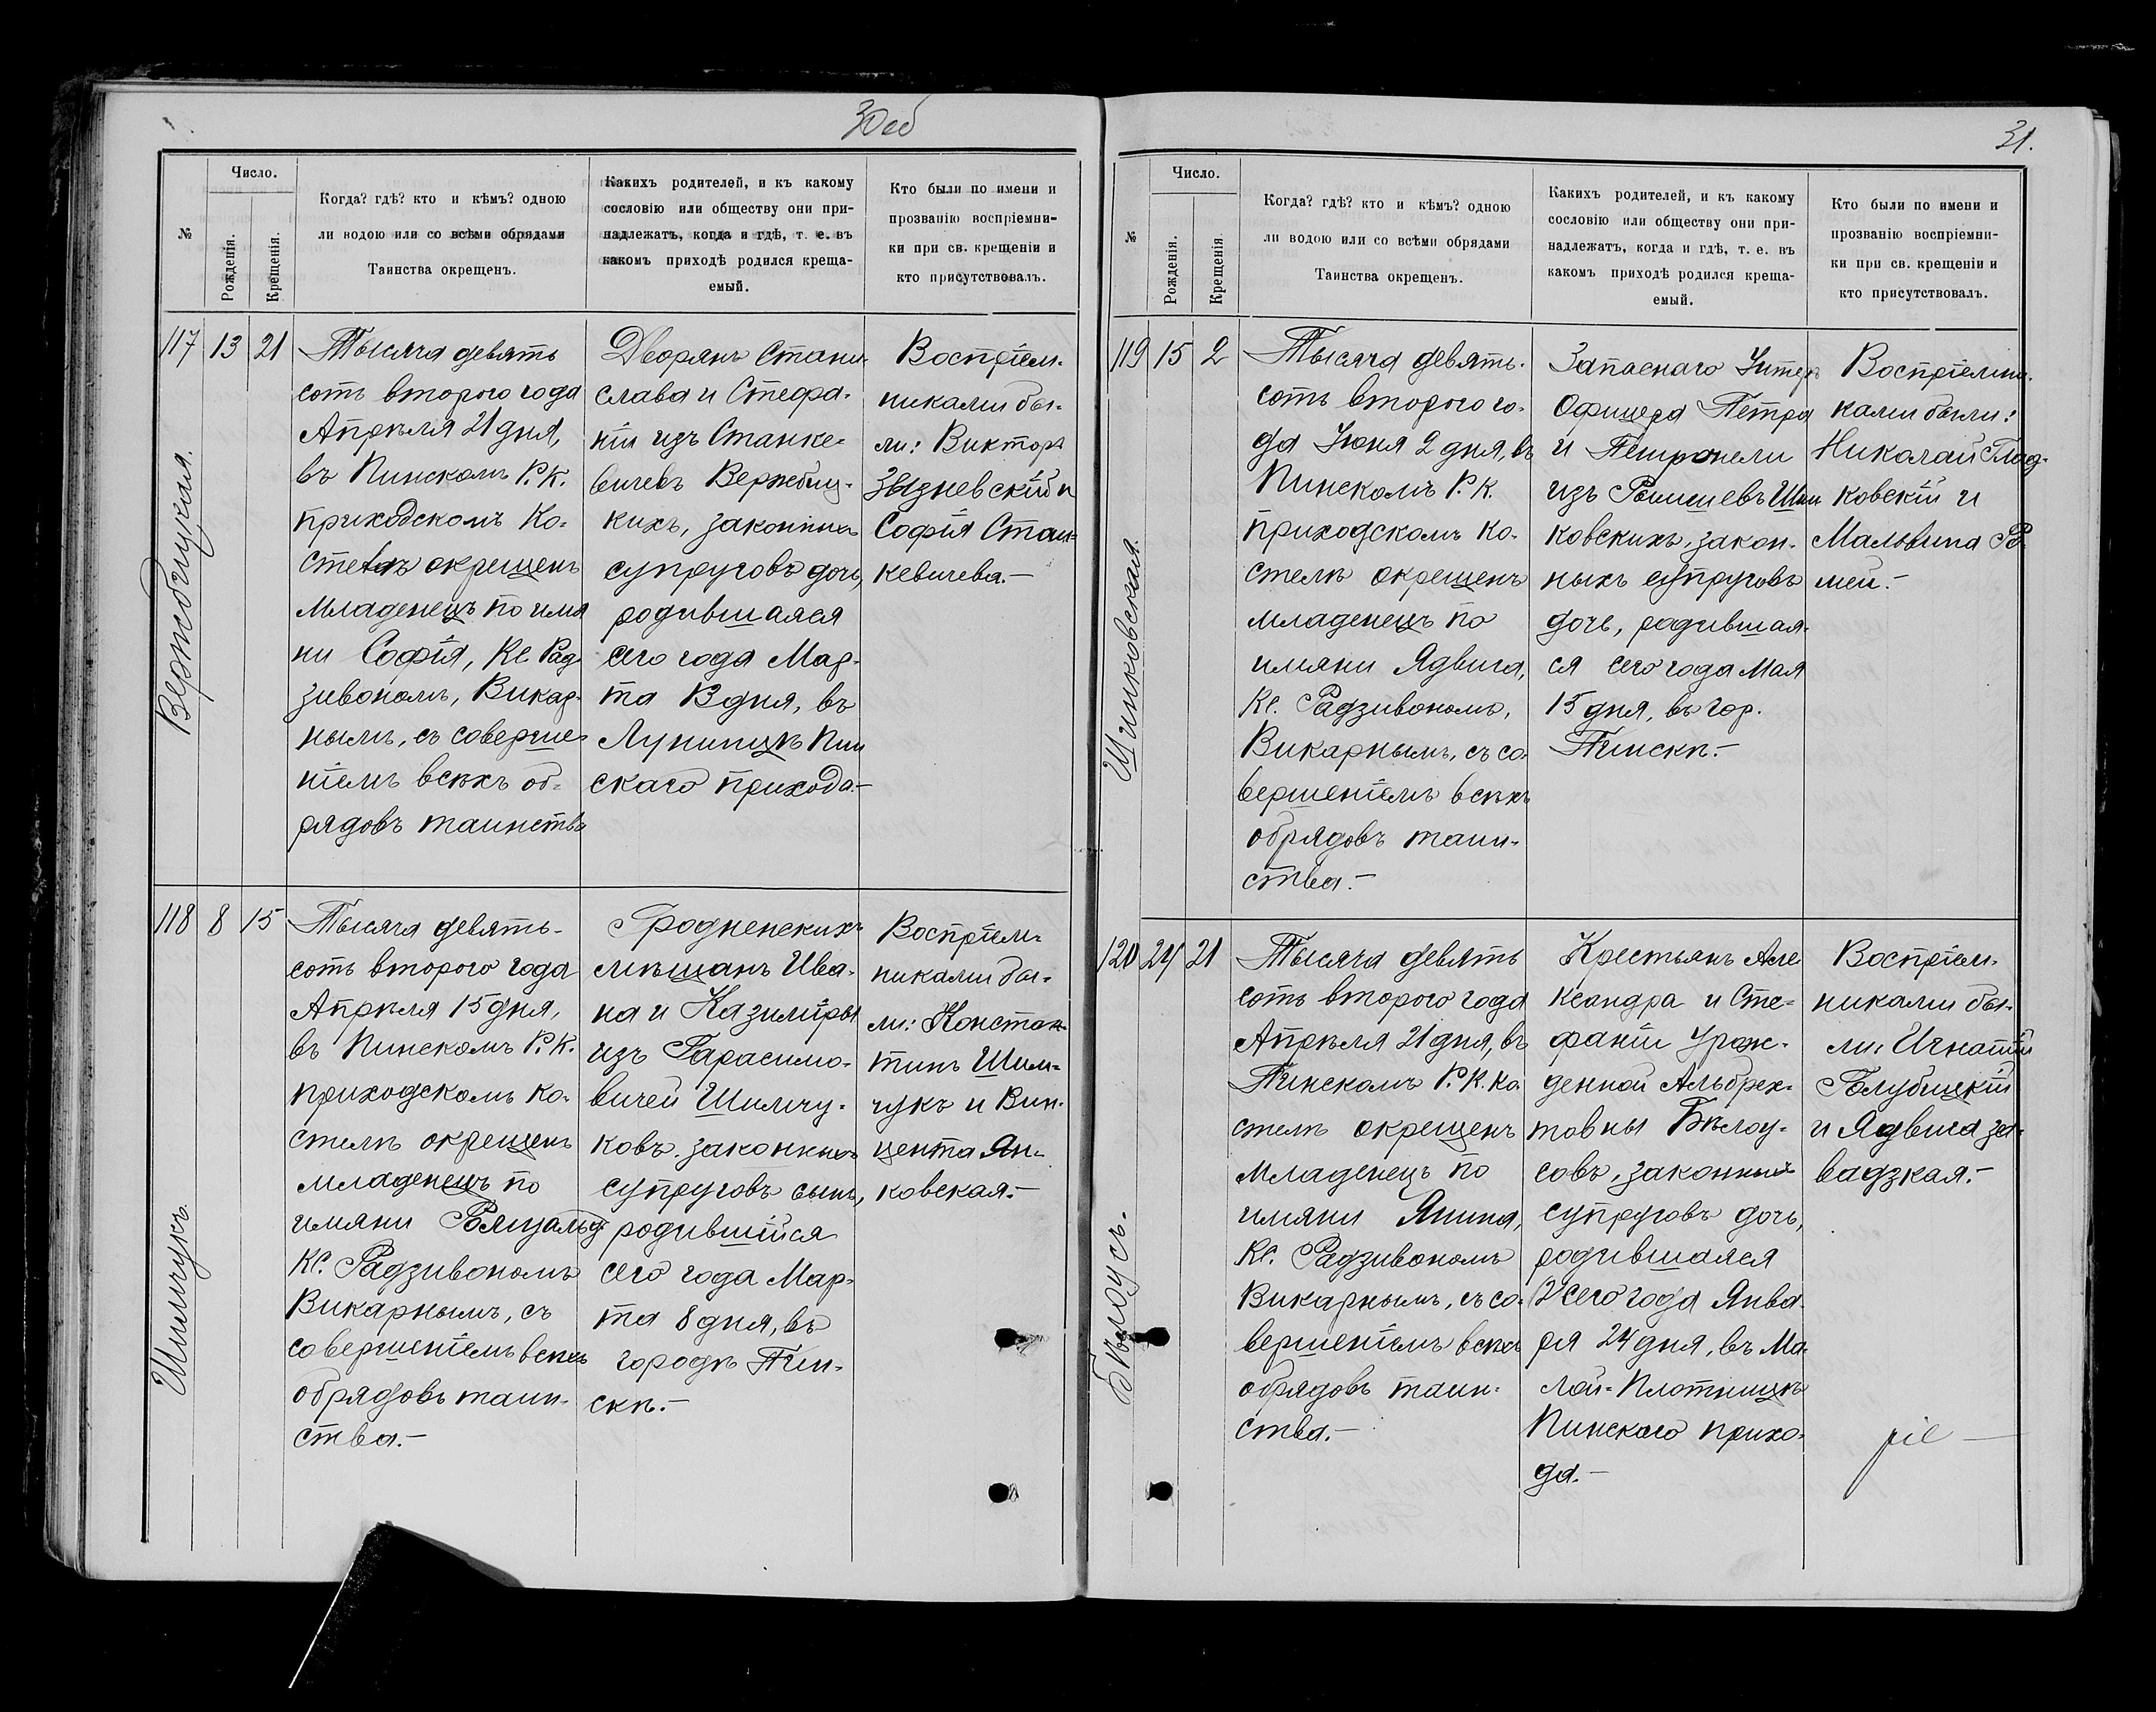 30об
Число.
№
Рожденія.
Крещенія.
Когда? гдѣ? кто и кѣмъ? одною
ли водою или со всѣми обрядами
Таинства окрещенъ.
Какихъ родителей, и къ какому
сословію или обществу они при-
надлежатъ, когда и гдѣ, т. е. въ
какомъ приходѣ родился креща-
емый.
Кто были по имени и
прозванію воспріемни-
ки при св. крещеніи и
кто присутствовалъ.
117 13 21
Вержбицкая.
Тысяча девять
сотъ второго года
Апрѣля 21 дня,
въ Пинскомъ Р. К.
приходскомъ Ко-
стелѣ окрещенъ
младенецъ по имя
ни Софія, Кс. Рад-
зивономъ, Викар-
нымъ, съ соверше-
ніемъ всѣхъ об-
рядовъ таинства
Дворянъ Стани-
слава и Стефа-
ніи изъ Станке-
вичевъ Вержбиц-
кихъ, законныхъ
супруговъ дочь,
родившаяся
сего года Мар-
та 13 дня, въ
Лунинцѣ Пин
скаго прихода.-
Воспріем-
никами бы-
ли: Викторъ
Звизневскій и
Софія Стан-
кевичева.-
118 8 15
Шимчукъ.
Тысяча девять-
сотъ второго года
Апрѣля 15 дня,
въ Пинскомъ Р. К.
приходскомъ Ко-
стелѣ окрещенъ
младенецъ по
имяни Ромуальд
Кс. Радзивономъ
Викарнымъ, съ
совершеніемъ всѣхъ
обрядовъ таин-
ства.-
Гродненскихъ
мѣщанъ Ива-
на и Казиміры
изъ Гарасимо-
вичей Шимчу-
ковъ, законныхъ
супруговъ сынъ,
родившійся
сего года Мар-
та 8 дня, въ
городѣ Пин-
скѣ.-
Воспріем-
никами бы-
ли: Констан-
тинъ Шим-
чукъ и Вин-
цента Ян-
ковская.-
31.
Число.
№
Рожденія.
Крещенія
Когда? гдѣ? кто и кѣмъ? одною
ли водою или со всѣми обрядами
Таинства окрещенъ.
Какихъ родителей, и къ какому
сословію или обществу они при-
надлежатъ, когда и гдѣ, т. е. въ
какомъ приходѣ родился креща-
емый.
Кто были по имени и
прозванію воспріемни-
ки при св. крещеніи и
кто присутствовалъ.
119 15 2
Тысяча девять-
сотъ второго го-
да Іюня 2 дня, въ
Пинскомъ Р. К.
приходскомъ Ко-
стелѣ окрещенъ
младенецъ по
имяни Ядвига,
Кс. Радзивономъ,
Викарнымъ, съ со-
вершеніемъ всѣхъ
обрядовъ таин-
ства.-
Запаснаго Унтеръ
Офицера Петра
и Петронели
изъ
ковскихъ, закон-
ныхъ супруговъ
дочь, родившая-
ся сего года Мая
15 дня, въ гор.
Пинскѣ.-
Воспріемни-
ками были:
Николай
ковскій и
Мальвина Ро-
мей.-
120 24 21
Бѣлоусъ.
Тысяча девять
сотъ второго года
Апрѣля 21 дня, въ
Пинскомъ Р. К. Ко-
стелѣ окрещенъ
младенецъ по
имяни Янина,
Кс. Радзивономъ
Викарнымъ, съ со-
вершеніемъ всѣхъ
обрядовъ таин-
ства.-
Крестьянъ Але
ксандра и Сте-
фаніи Урож-
денной Альбрех-
товны Бѣлоу-
совъ, законныхъ
супруговъ дочь,
родившаяся
сего года Янва-
ря 24 дня, въ Ма-
лой-Плотницѣ
Пинскаго прихо-
да.-
Воспріем-
никами бы-
ли: Игнатій
Голубицкій
и Ядвига За-
вадзкая.-